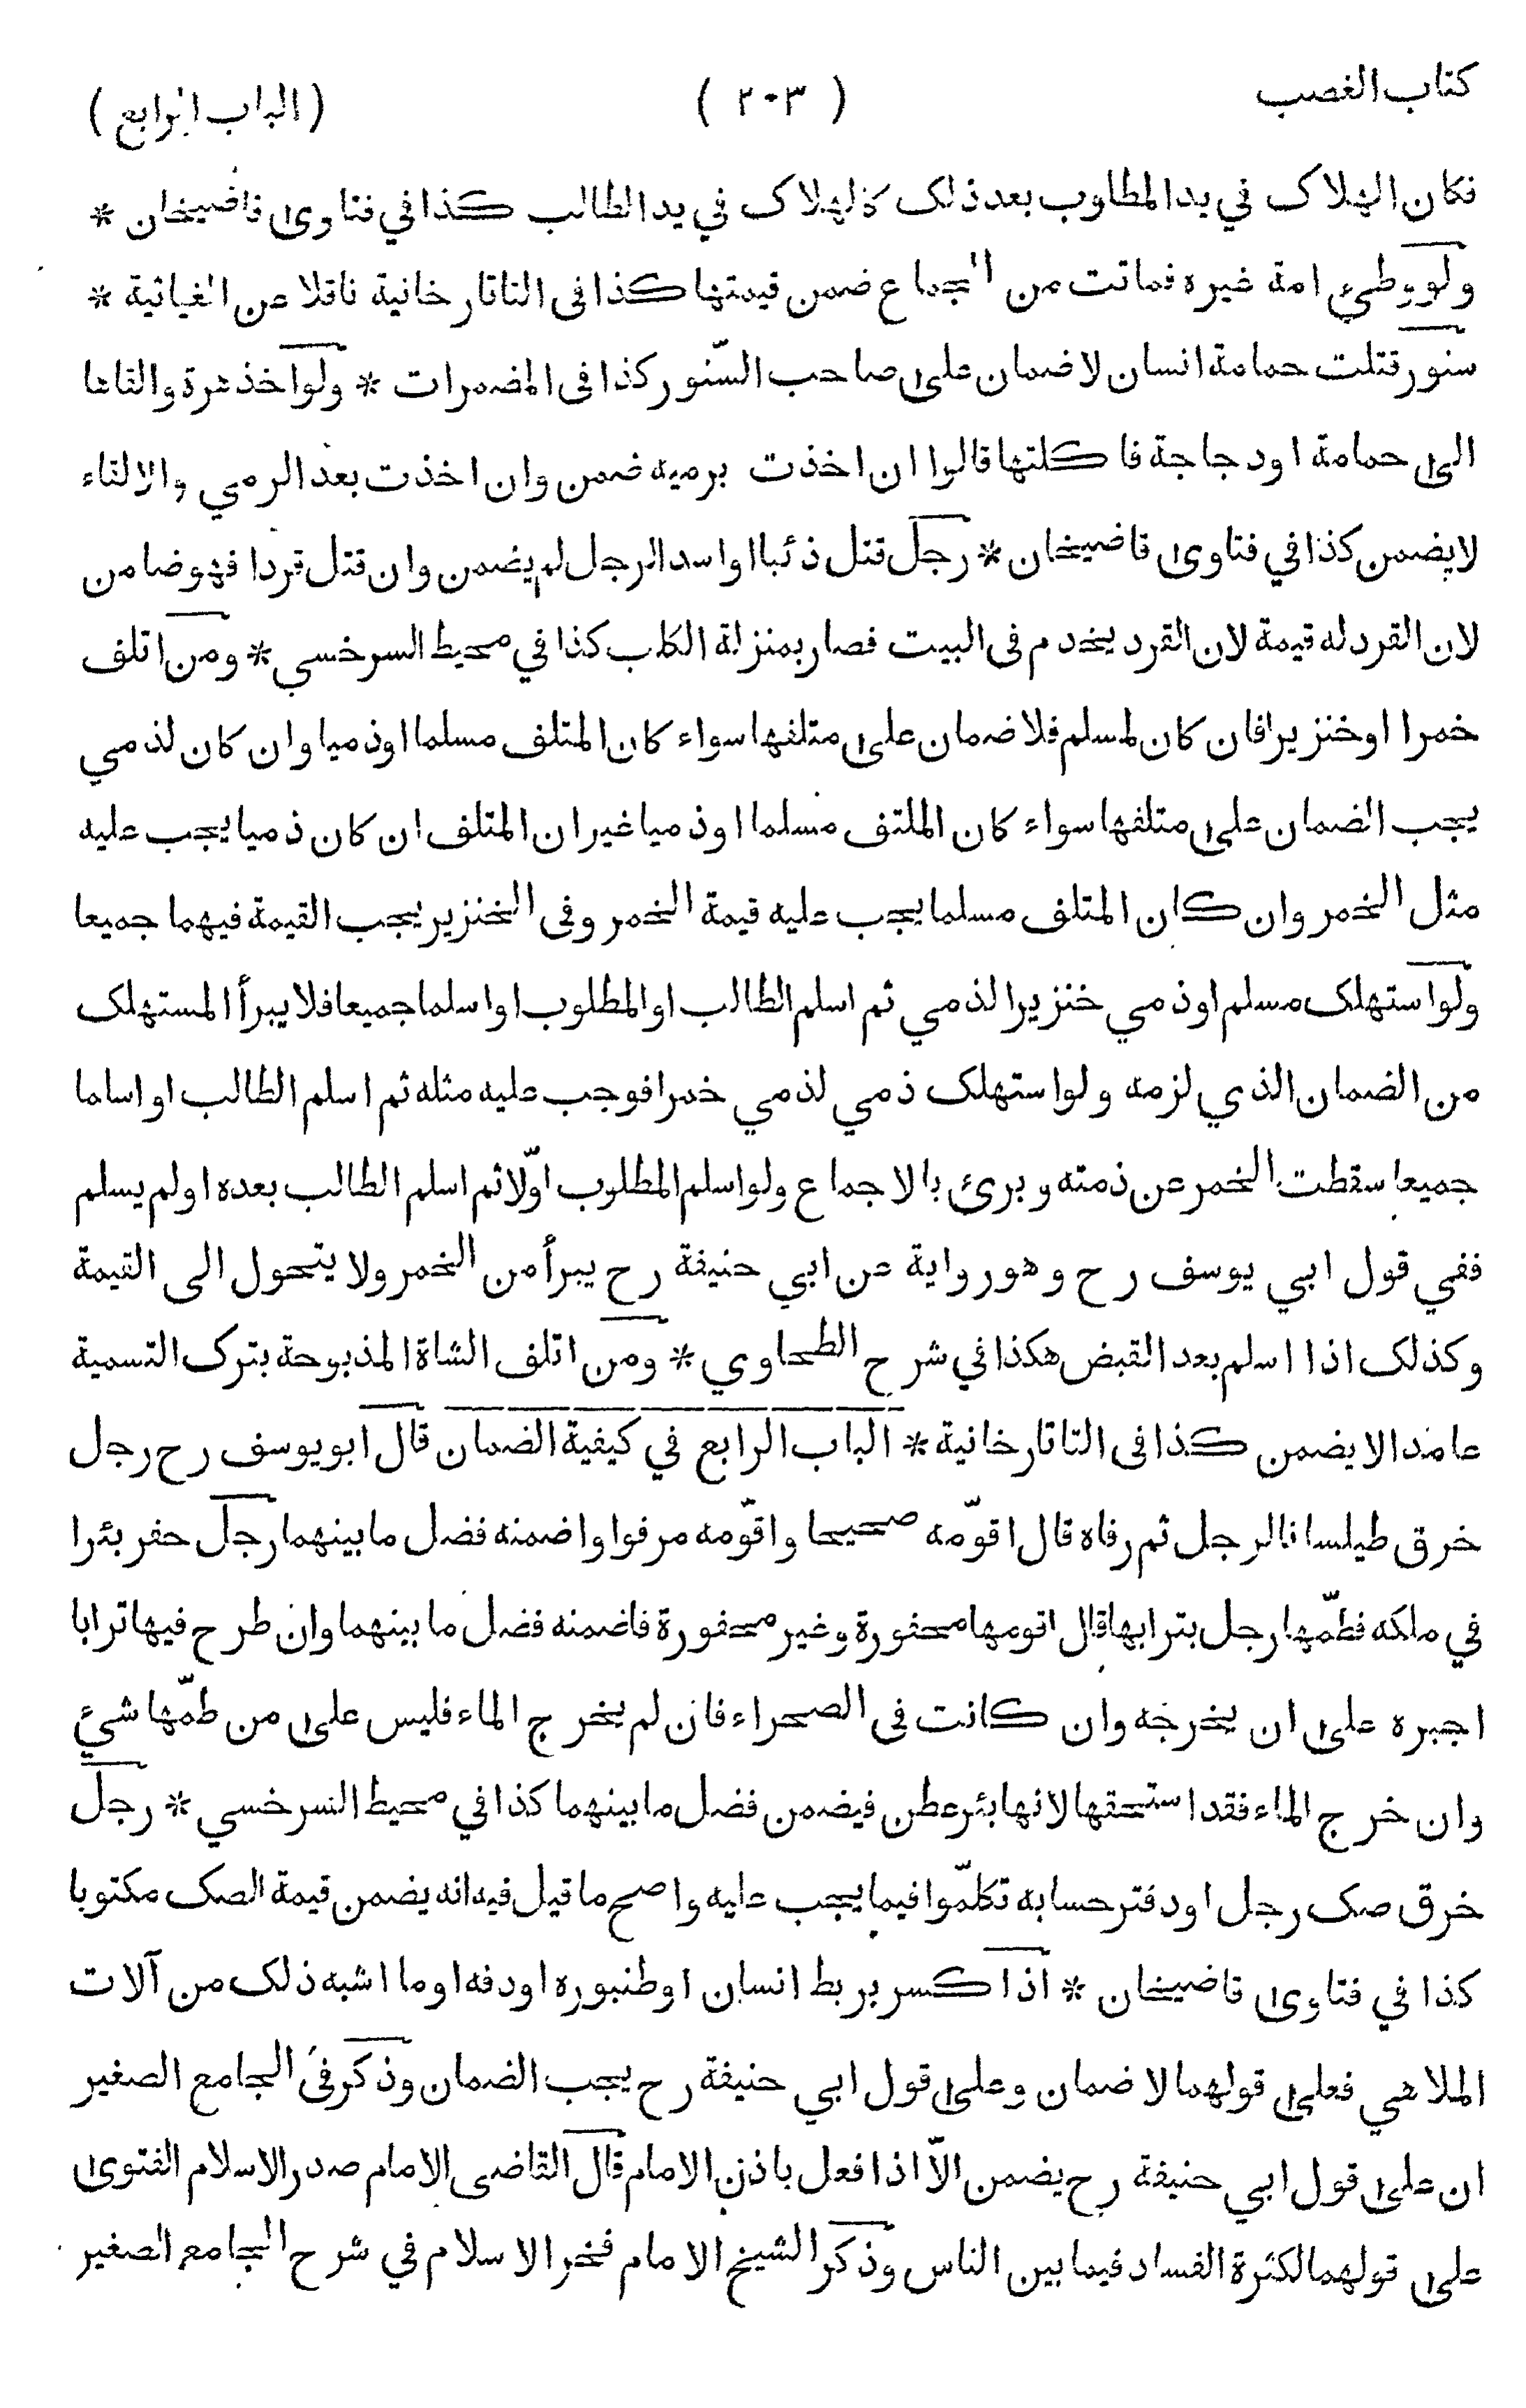 كتاب الغصب ( ٢٠٣ ) ( الباب الرابع )
فكان الهلاك في يد المطلوب بعد ذلك كالهلاك في يد الطالب كذا في فتاوى قاضيخان *
ولو وطئ امة غيره فماتت من الجماع ضمن قيمتها كذا فى التاتارخانية ناقلا عن الغياثية *
سنور قتلت حمامة انسان لا ضمان على صاحب السنّور كذا فى المضمرات * ولو اخذ هرة والقاها
الى حمامة او دجاجة فاكلتها قالوا ان اخذت برميه ضمن وان اخذت بعد الرمي والالقاء
لا يضمن كذا في فتاوى قاضيخان * رجل قتل ذئبا او اسدا لرجل لم يضمن وان قتل قردا فهو ضامن
لان القرد له قيمة لان القرد يخدم فى البيت فصار بمنزلة الكلب كذا في محيط السرخسي * ومن اتلف
خمرا او خنزيرا فان كان لمسلم فلا ضمان على متلفها سواء كان المتلف مسلما او ذميا وان كان لذمي
يجب الضمان على متلفها سواء كان الملتف مسلما او ذميا غير ان المتلف ان كان ذميا يجب عليه
مثل الخمر وان كان المتلف مسلما يجب عليه قيمة الخمر وفى الخنزير يجب القيمة فيهما جميعا
ولو استهلك مسلم او ذمي خنزيرا لذمي ثم اسلم الطالب او المطلوب او اسلما جميعا فلا يبرأ المستهلك
من الضمان الذي لزمه ولو استهلك ذمي لذمي خمرا فوجب عليه مثله ثم اسلم الطالب او اسلما
جميعا سقطت الخمر عن ذمته وبرئ بالاجماع ولو اسلم المطلوب اوّلا ثم اسلم الطالب بعده او لم يسلم
ففي قول ابي يوسف رح وهو رواية عن ابي حنيفة رح يبرأ من الخمر ولا يتحول الى القيمة
وكذلك اذا اسلم بعد القبض هكذا في شرح الطحاوي * ومن اتلف الشاة المذبوحة بترك التسمية
عامدا لا يضمن كذا فى التاتارخانية * الباب الرابع في كيفية الضمان قال ابو يوسف رح رجل
خرق طيلسانا لرجل ثم رفاه قال اقوّمه صحيحا واقوّمه مرفوا واضمنه فضل ما بينهما رجل حفر بئرا
في ملكه فطمّها رجل بترابها قال اقومها محفورة وغير محفورة فاضمنه فضل ما بينهما وان طرح فيها ترابا
اجبره على ان يخرجه وان كانت فى الصحراء فان لم يخرج الماء فليس على من طمّها شيئ
وان خرج الماء فقد استحقها لانها بئر عطن فيضمن فضل ما بينهما كذا في محيط السرخسي * رجل
خرق صك رجل او دفتر حسابه تكلّموا فيما يجب عليه واصح ما قيل فيه انه يضمن قيمة الصك مكتوبا
كذا في فتاوى قاضيخان * اذا كسر بربط انسان او طنبوره او دفه او ما اشبه ذلك من آلات
الملاهي فعلى قولهما لا ضمان وعلى قول ابي حنيفة رح يجب الضمان وذكر فى الجامع الصغير
ان على قول ابي حنيفة رح يضمن الّا اذا فعل باذن الامام قال القاضى الامام صدر الاسلام الفتوى
على قولهما لكثرة الفساد فيما بين الناس وذكر الشيخ الامام فخر الاسلام في شرح الجامع الصغير